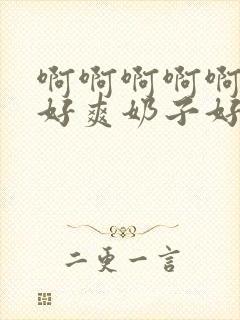 啊啊啊啊啊
好爽奶子好
二更一言